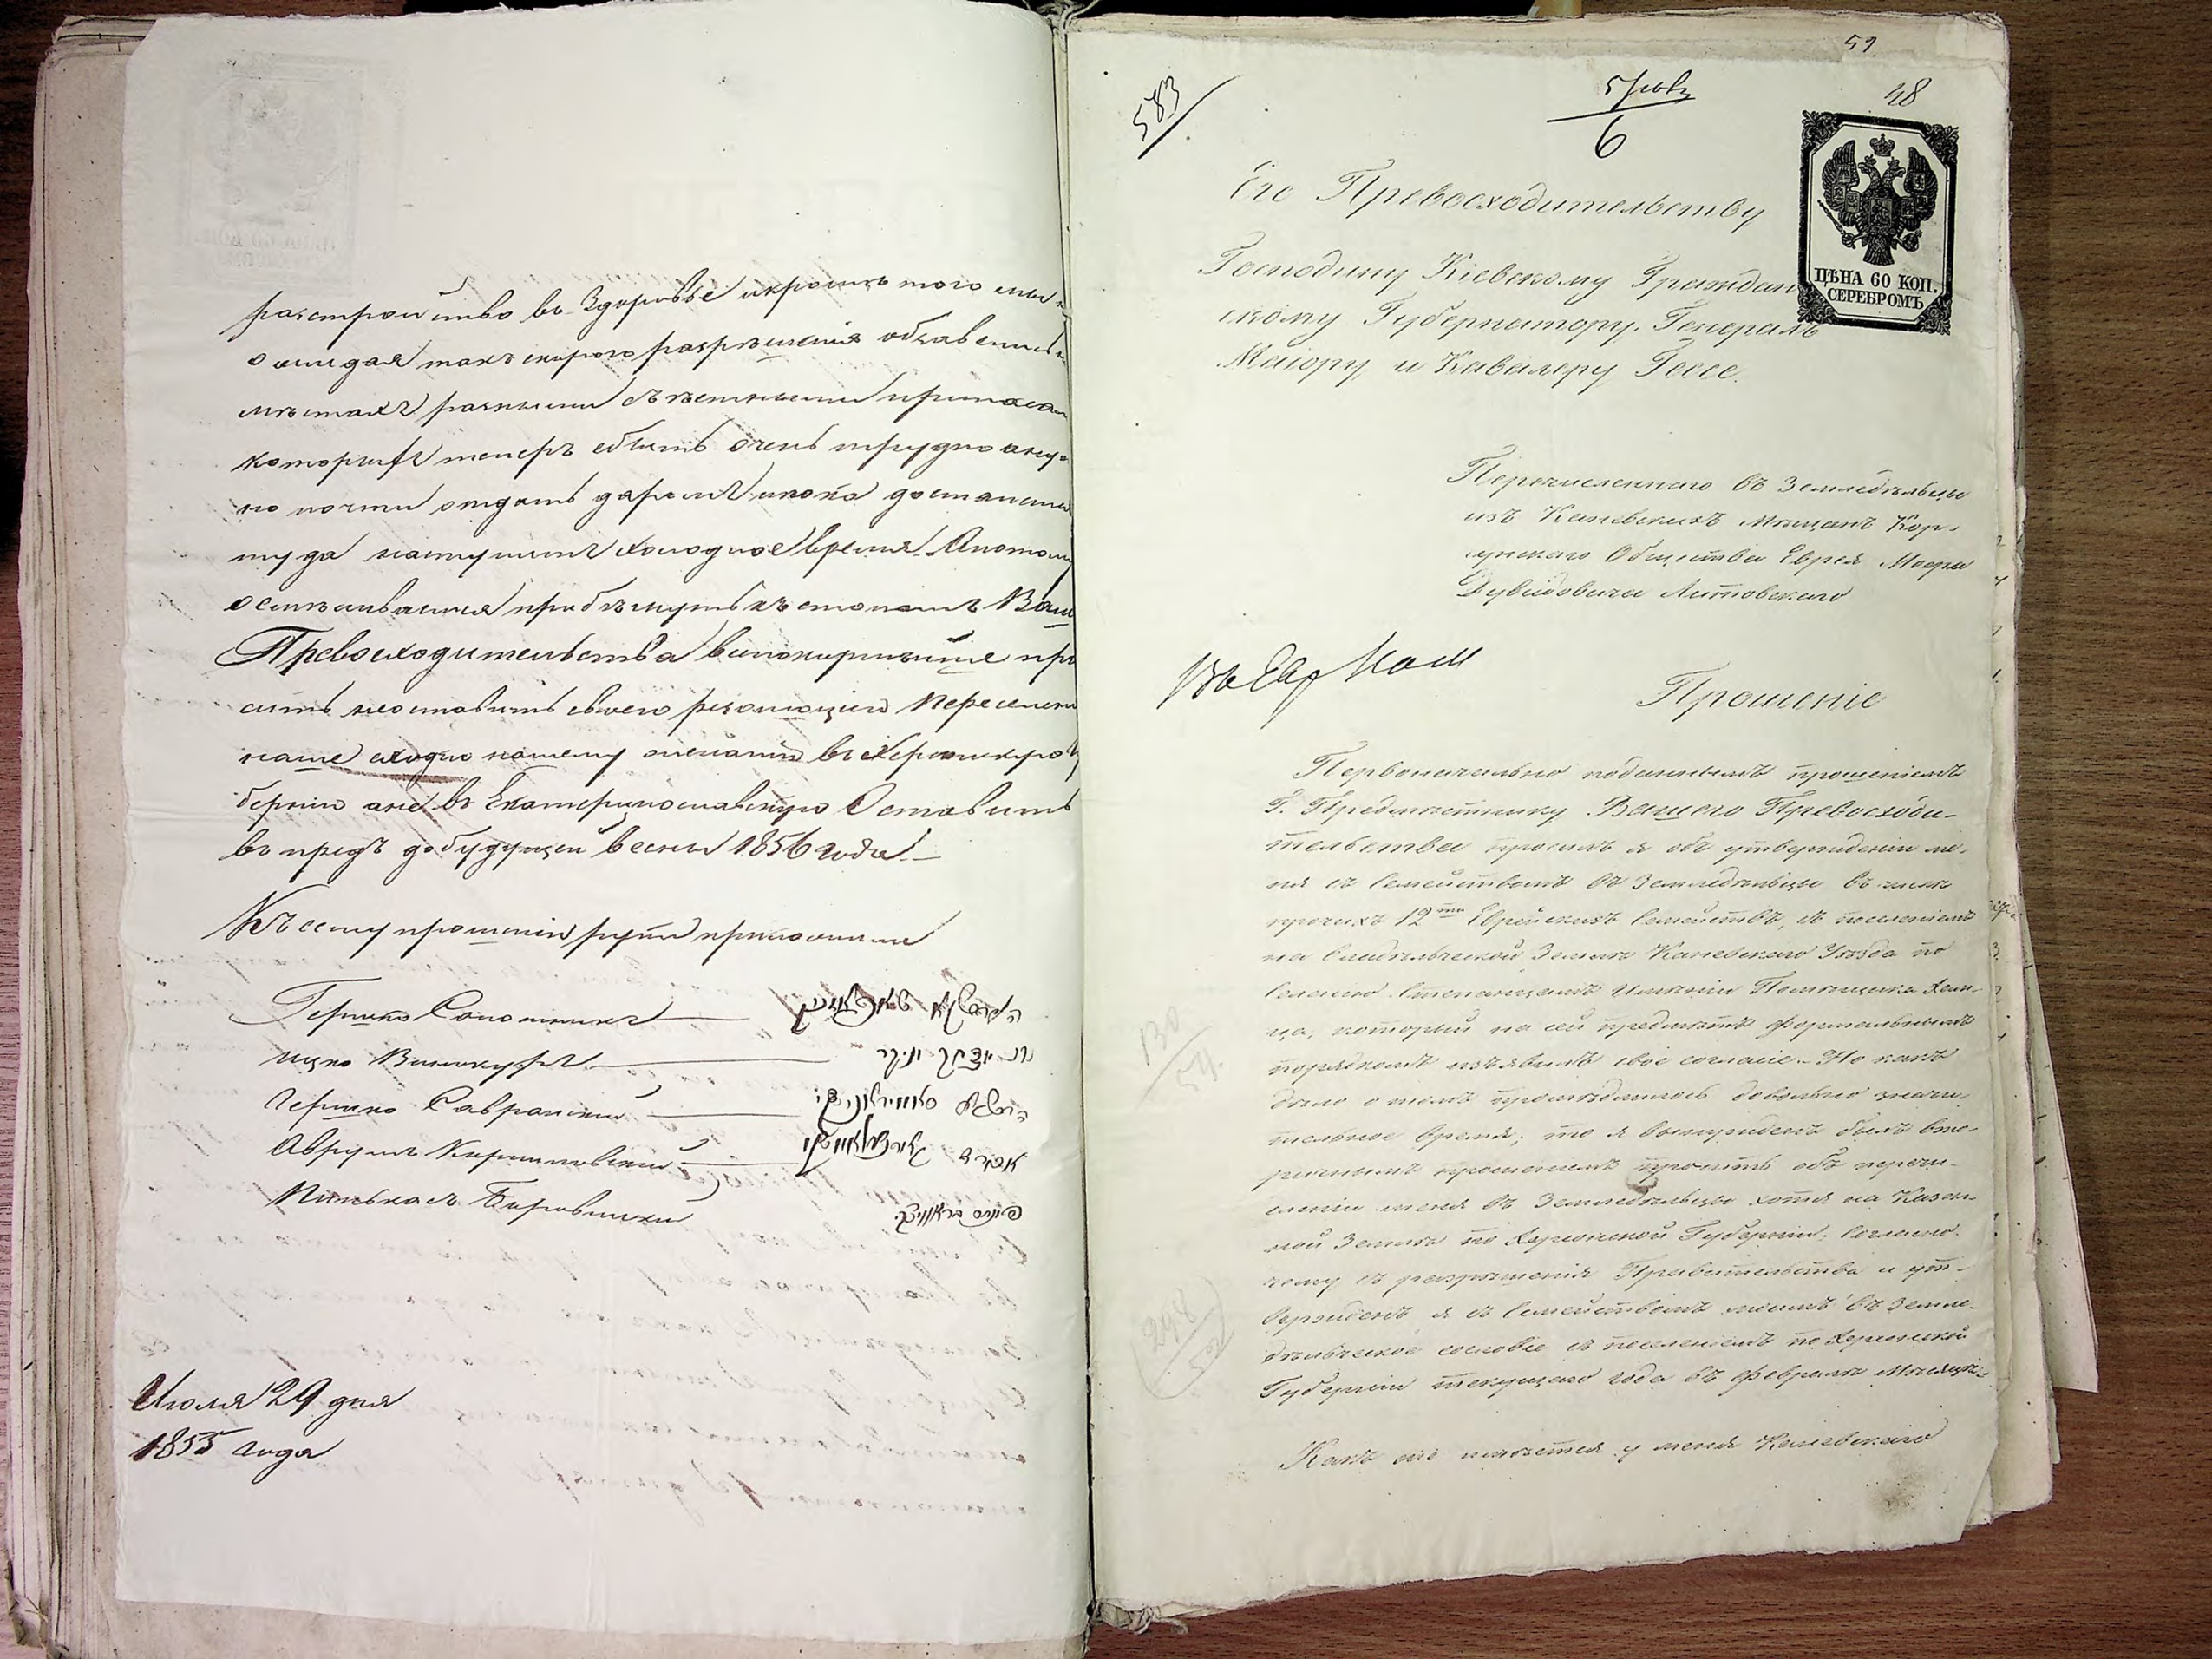 разстройство въ Здоровьѣ и кромѣ того мы н
ожидая такъ скораго разрѣшенія обзавелись
мѣстахъ разными съѣстными припаса
которыхъ теперъ сбыть очень трудно а ну
но почти отдать даромъ и пока достани
туда наступитъ холодное время. А потому
осмѣливаемся прибѣгнуть къ стопамъ Ваш
Превосходительства всепокорнѣйше про
сить неоставить своего резолюціею Переселени
наше сходно нашему желанію въ Херсонскую Гу
бернію а не въ Екатеринославскую Оставить
въ предъ до будущей весны 1856 года.—
Къ сему прошенію руки приложили
Гершко Сопошникъ
Ицко Винокуръ
Гершко Савранскій
Аврумъ Каршиловскій
Пинькасъ Боровицкій
Июля 29 дня
1855 года
59
583
5 Июль
6
48
ЦѢНА 60 КОП.
СЕРЕБРОМЪ
Его Превосходительству
Господину Кіевскому Граждан
скому Губернатору, Генералъ
Маіору и Кавалеру Гессе.
Перечисленнаго въ Земледѣльцы
изъ Каневскихъ Мѣщанъ Кор-
сунскаго Общества Еврея Мовша
Дувидовича Литовскаго
Прошеніе
Первоначально поданнымъ прошеніемъ
Г. Предмѣстнику Вашего Превосходи-
тельства просилъ я объ утвержденіи ме-
ня съ Семействомъ въ Земледѣльцы въ числѣ
прочихъ 12ти Еврейскихъ Семействъ, съ поселеніемъ
на Владѣльческой Землѣ Каневскаго Уѣзда по
Селенію Степанцамъ Имѣніи Помѣщика
который на сей предметъ формальнымъ
порядкомъ изъявилъ свое согласіе. Но какъ
дѣло о томъ продлилось довольно значи-
тельное время, то я вынужденъ былъ вто-
ричнымъ прошеніемъ просить объ перечи-
сленіи меня въ Земледѣльцы хотя на Казен-
ной Землѣ по Херсонской Губерніи, Согласно
чему съ разрѣшенія Правительства и утв-
вержденъ я съ Семействомъ моимъ въ Земле-
дѣльческое сословіе съ поселеніемъ по Херсонской
Губерніи текущаго года въ Февралѣ Мѣсяцѣ.
Какъ же имѣется у меня Каневскаго
130
59.
248